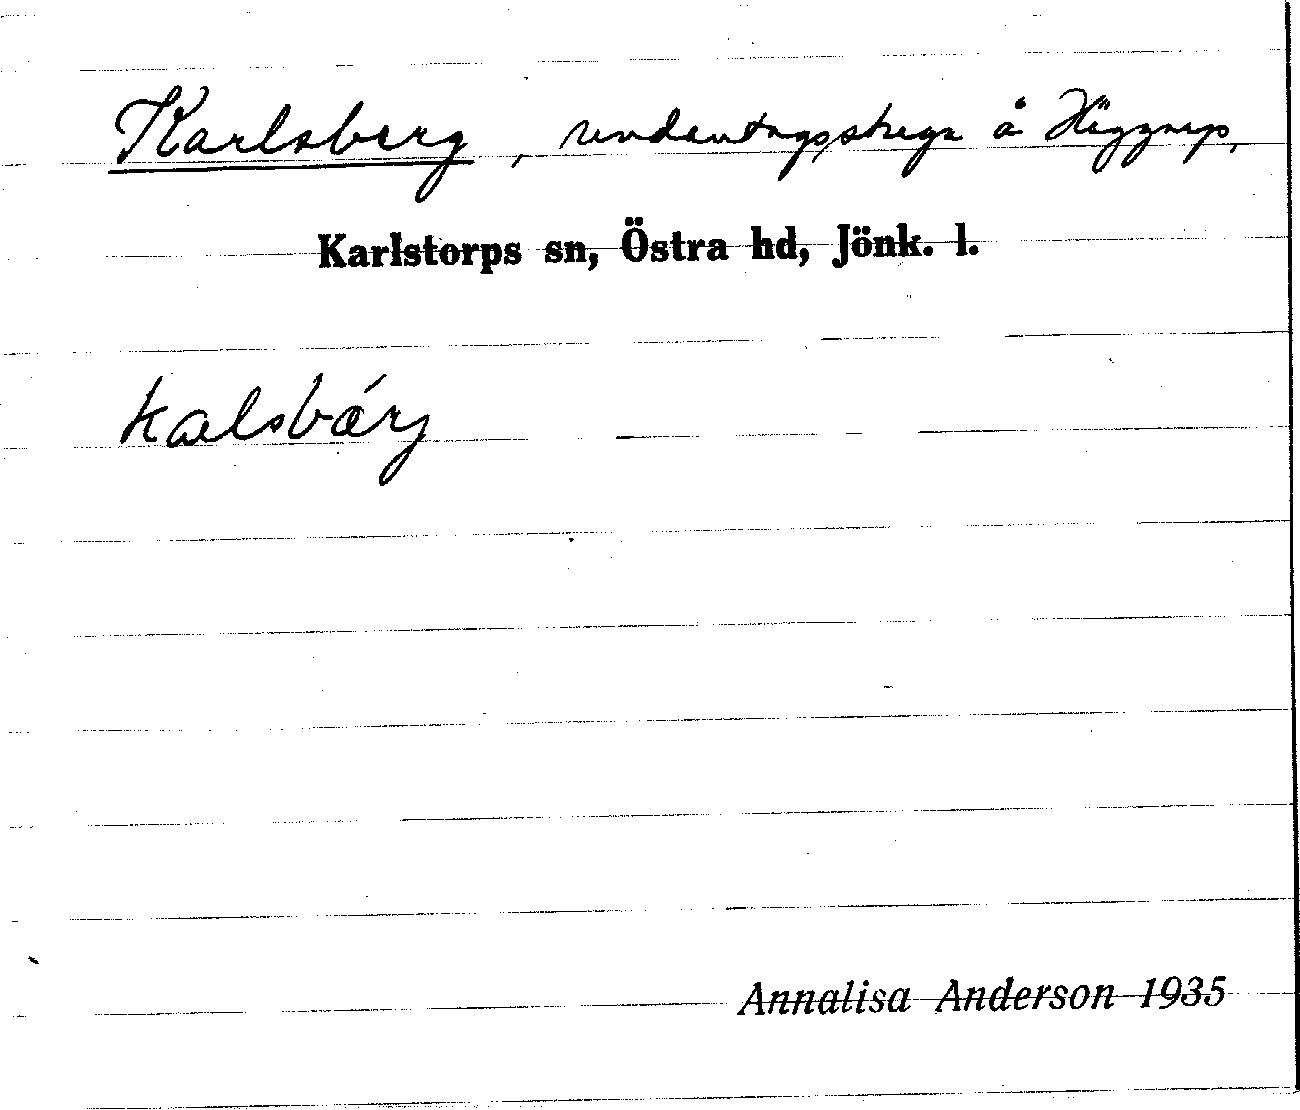 Karlsberg, undantagsstuga å Häggarp,
Karlstorps sn, Östra hd, Jönk. l.
kalsbárj
Annalisa Anderson 1935